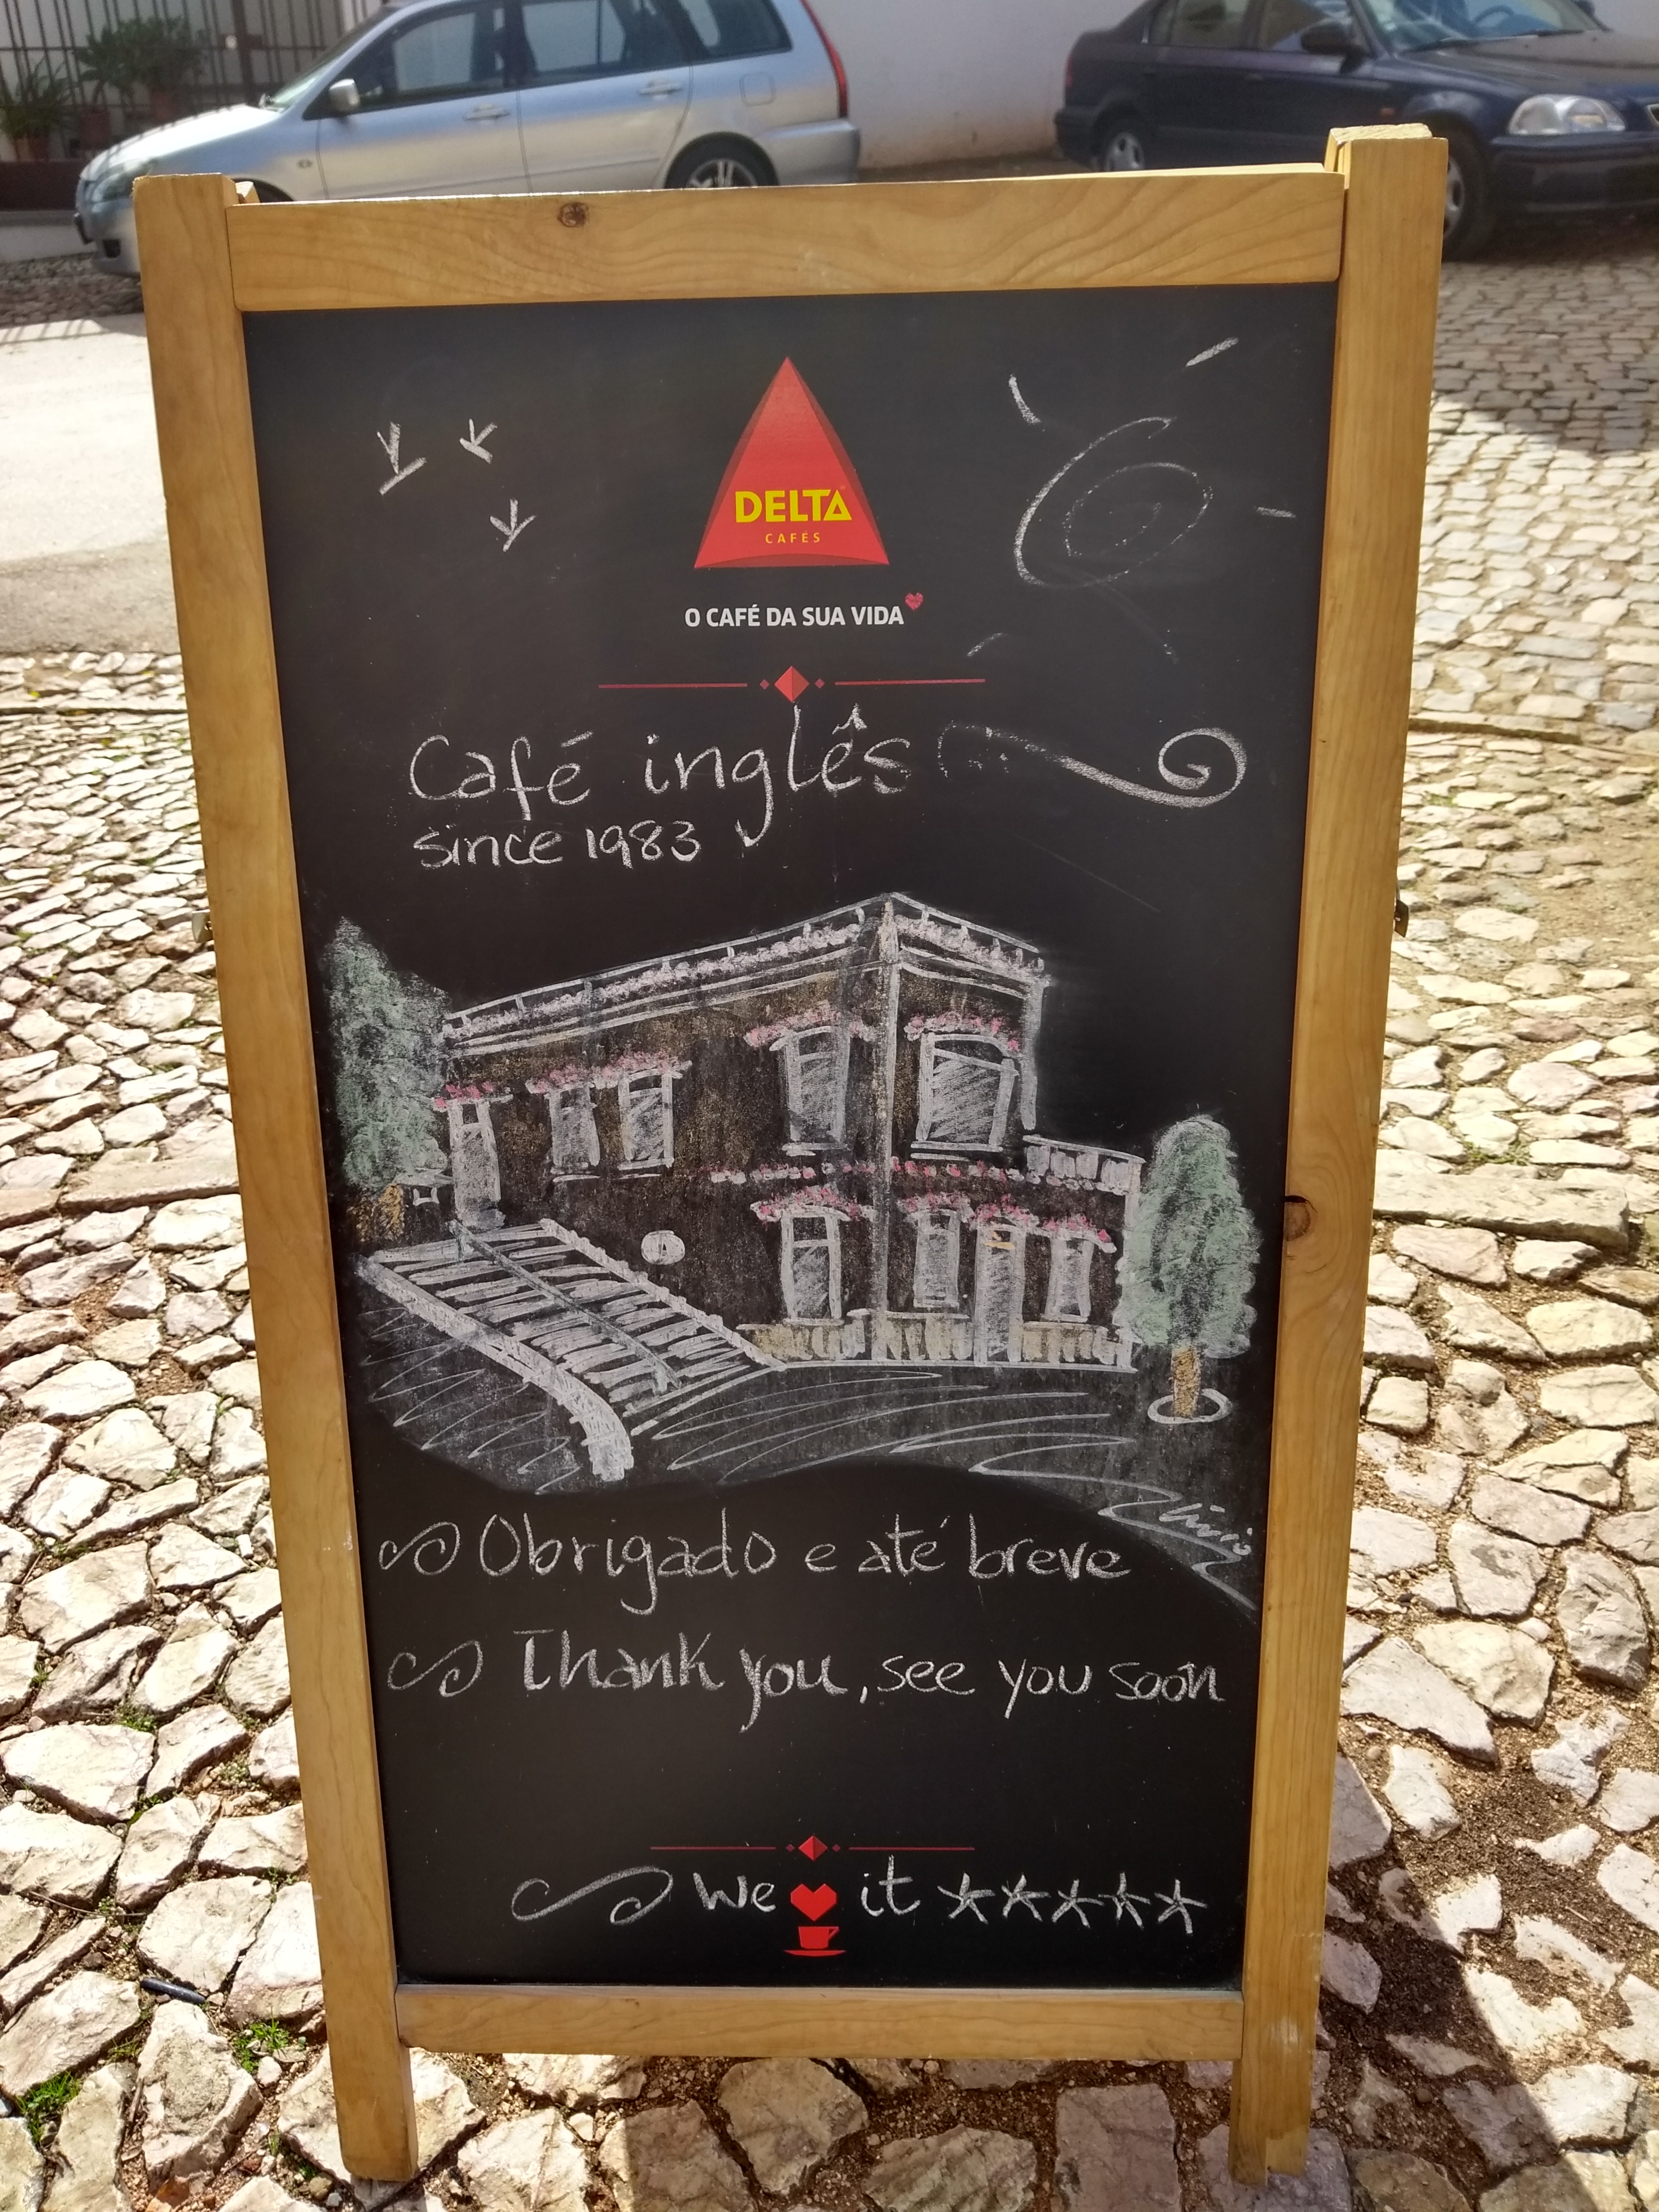 DELTA
CAFÉS
O CAFÉ DA SUA VIDA
Café inglês
since 1983
Obrigado e até breve
Thank you, see you soon
We ❤ it ☆☆☆☆☆